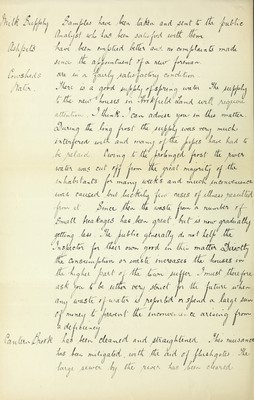 Milk Supply Samples have been taken and sent to the public
Analyst who has been satisfied with them
Ashpits had been emptied better and no complaints made
since the appointment of a new foreman.
Cowsheds are in a fairly satisfactory condition
Water. There is a good supply of spring water. The supply
to the new houses in Land will require
attention. I think I can advise you in this matter.
During the long frost the supply was very much
interfered with and many of the pipes have had to
be relaid. Owing to the prolonged frost the river
water was cut off from the great majority of the
inhabitants for many weeks and much inconvenience
was caused but luckily few cases of illness resulted
from it. Since then the waste from a number of
small leakages has been great but is now gradually
getting less. The public generally do not help the
Inspector for their own good in this matter. Directly
the consumption or waste increases the houses in
the higher part of the town suffer. I must therefore
ask you to be either very strict for the future when
any waste of water is reported or spend a large sum
of money to prevent the inconvenience arising from
a deficiency
Brook has been cleaned and straightened. This nuisance
has been mitigated, with the aid of flushgates. The
large sewer by the river has been cleaned